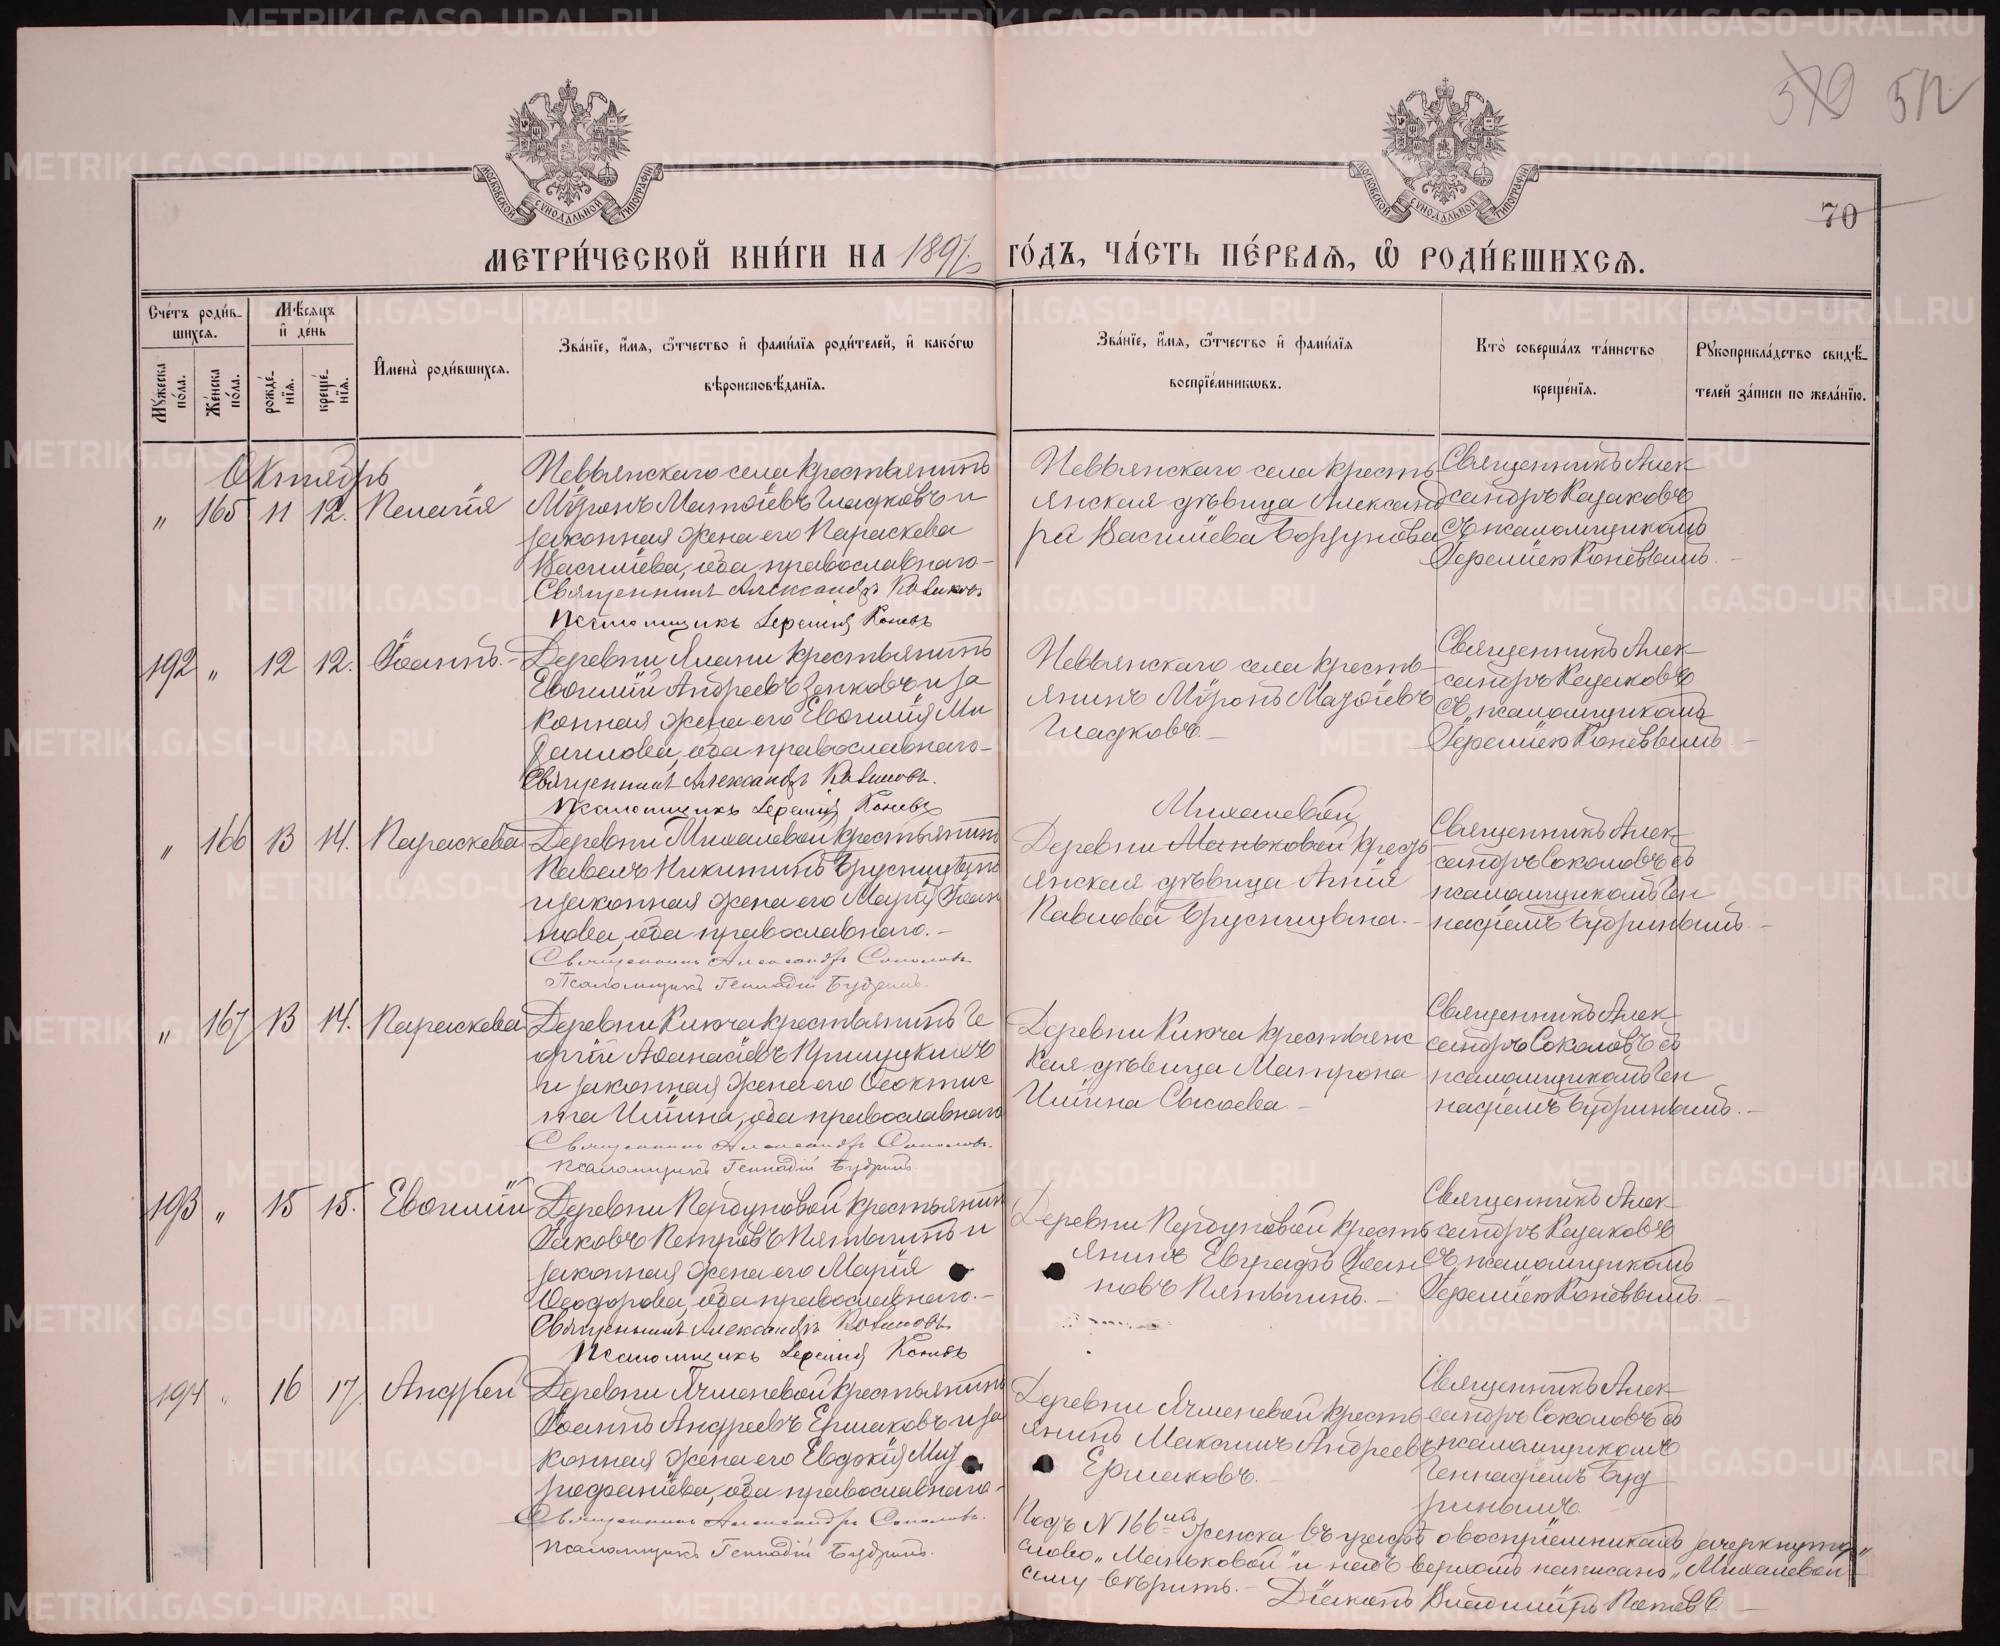 579 512
70
МОСКОВСКОЙ СѴНОДАЛЬНОЙ ТИПОГРАФІИ
МОСКОВСКОЙ СѴНОДАЛЬНОЙ ТИПОГРАФІИ
МЕТРИ́ЧЕСКОЙ КНИ́ГИ НА 1897. ГО́ДЪ, ЧА́СТЬ ПЕ́РВАѦ, Ѽ РОДИ́ВШИХСѦ.
Сче́тъ роди́вшихсѧ.
Мꙋ́жеска по́ла.
Же́нска по́ла.
Мѣ́сѧцъ и҆ де́нь
рожде́нїѧ.
креще́нїѧ.
И҆мена̀ роди́вшихсѧ.
Зва́нїе, и҆́мѧ, ѻ҆́тчество и҆ фами́лїѧ роди́телей, и҆ како́гѡ
вѣроисповѣ́данїѧ.
Зва́нїе, и҆́мѧ, ѻ҆́тчество и҆ фами́лїѧ
воспрїе́мникѡвъ.
Кто̀ соверша́лъ та́инство
креще́нїѧ.
Рꙋкоприкла́дство свидѣ́-
телей за́писи по жела́нїю.
Октябрь
" 165 11 12. Пелагія
Невьянскаго села крестьянинъ
Мѵронъ Матѳіевъ Гладковъ и
законная жена его Параскева
Василіева, оба православнаго
Священникъ Александръ Казаковъ
Псаломщикъ Іеремія Коневъ
Невьянскаго села кресть
янская дѣвица Александ
ра Василіева Бордунова
Священникъ Алек
сандръ Казаковъ
съ псаломщикомъ
Іереміею Коневымъ.
192 " 12 12. Іоаннъ.
Деревни Ялани крестьянинъ
Евѳимій Андреевъ Зенковъ и за
конная жена его Евѳимія Ми
хаилова, оба православнаго
Священникъ Александръ Казаковъ.
Псаломщикъ Іеремія Коневъ
Невьянскаго села кресть
янинъ Мѵронъ Матѳіевъ
Гладковъ.
Священникъ Алек
сандръ Казаковъ
съ псаломщикомъ
Іереміею Коневымъ.
" 166 13 14. Параскева
Деревни Михалевой крестьянинъ
Павелъ Никитинъ Брусницынъ
и законная жена его Марія Іоан
нова, оба православнаго.
Священникъ Александръ Соколовъ
Псаломщикъ Геннадій Будринъ.
Михалевой
Деревни Маньковой кресть
янская дѣвица Анна
Павлова Брусницына.
Священникъ Алек
сандръ Соколовъ съ
псаломщикомъ Ген
надіемъ Будринымъ.
" 167 13 14. Параскева
Деревни Ключа крестьянинъ Ге
оргій Аѳанасіевъ
и законная жена его Ѳеоктис
та Иліина, оба православнаго
Священникъ Александръ Соколовъ.
Псаломщикъ Геннадій Будринъ
Деревни Ключа крестьянс
кая дѣвица Матрона
Иліина Сысоева
Священникъ Алек
сандръ Соколовъ съ
псаломщикомъ Ген
надіемъ Будринымъ.
193 " 15 15. Евѳимій
Деревни Пердуновой крестьянинъ
Іаковъ Петровъ Пятыгинъ и
законная жена его Марія
Ѳеодорова, оба православнаго.
Священникъ Александръ Казаковъ
Псаломщикъ Іеремія Коневъ
Деревни Пердуновой кресть
янинъ Евграфъ Іоан
новъ Пятыгинъ.
Священникъ Алек
сандръ Казаковъ
съ псаломщикомъ
Іереміею Коневымъ.
194 " 16 17. Андрей
Деревни Ячменевой крестьянинъ
Іоаннъ Андреевъ Ермаковъ и за
конная жена его Евдокія Мит
рофаніева, оба православнаго
Священникъ Александръ Соколовъ.
Псаломщикъ Геннадій Будринъ.
Деревни Ячменевой кресть
янинъ Максимъ Андреевъ
Ермаковъ.
Священникъ Алек
сандръ Соколовъ съ
псаломщикомъ
Геннадіемъ Буд
ринымъ
Подъ № 166 женска въ графѣ о воспріемникахъ зачеркнуто
слово „Маньковой" и надъ верхомъ написано „Михалевой"
сему вѣрить. Діаконъ Владиміръ Поповъ